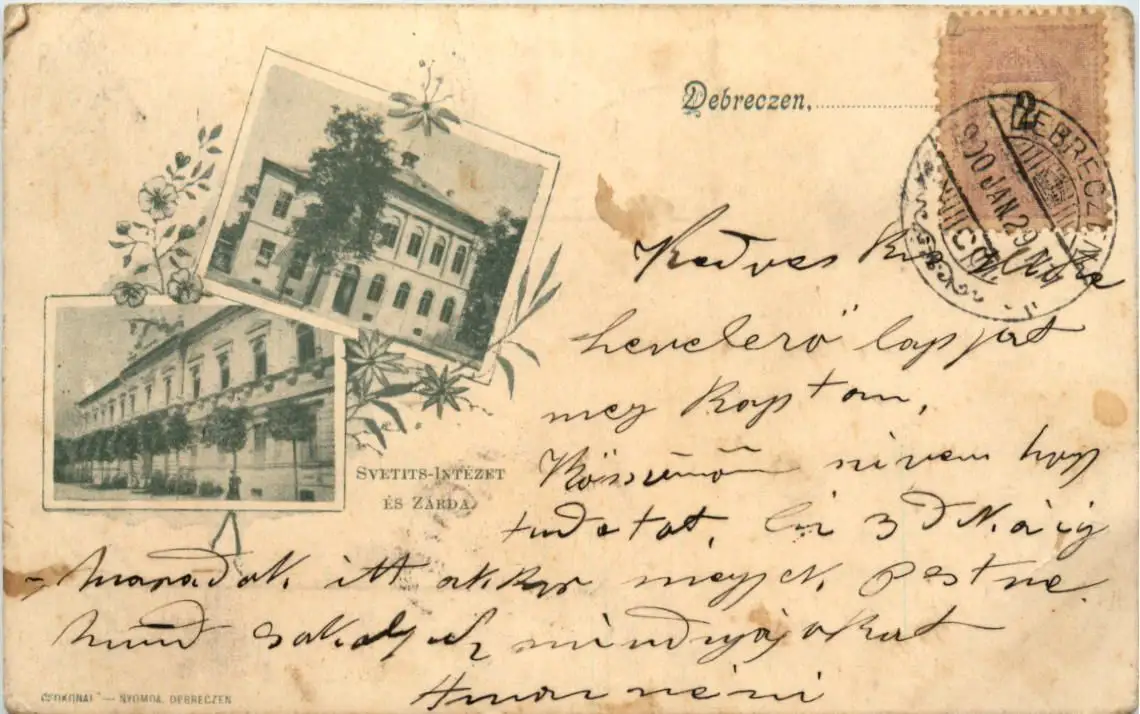 Debreczen,
2
DEBRECZEN
900 JAN 29
Kedves
levelező lapjat
meg kaptam,
Kösszönöm sivem hogy
tudatot, én 3 d
maradok itt akkor megyek pestre
mindnyájokat
néni
SVETITS-INTÉZET
ÉS ZÁRDA.
CSOKONAI — NYOMDA, DEBRECZEN